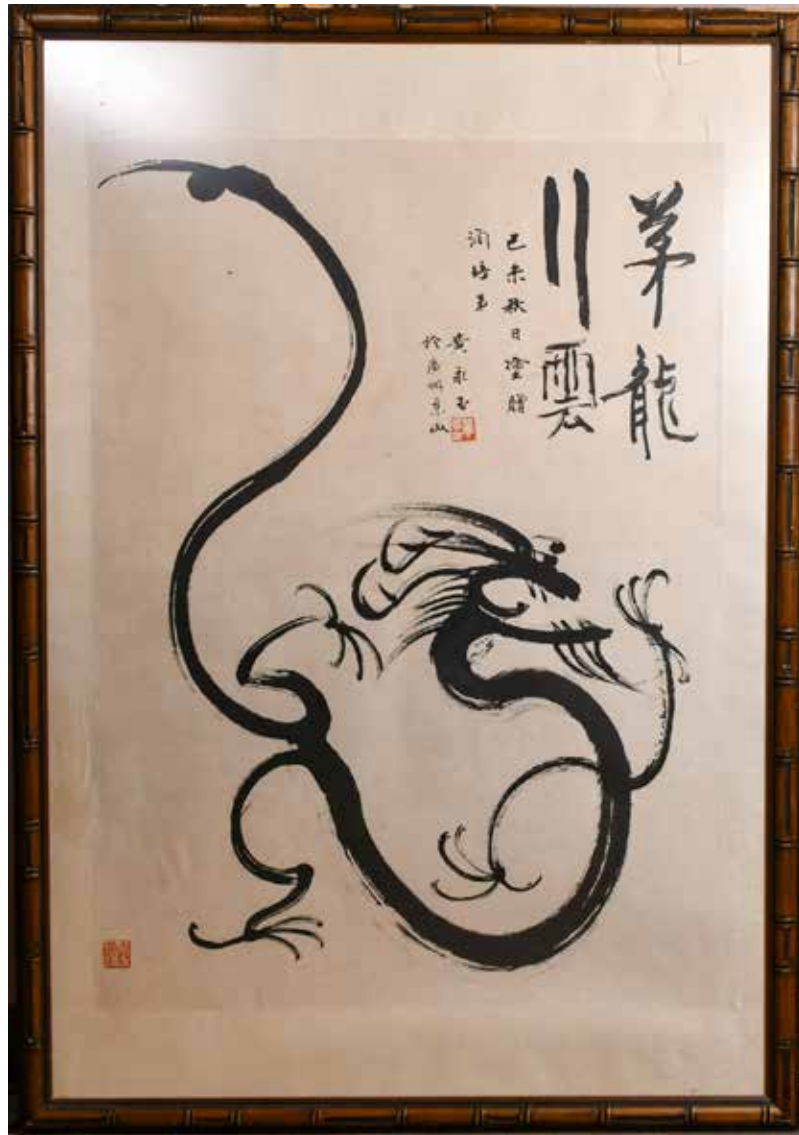 茅龍
雲
己未秋日塗贈
潤培弟
黄永玉
於廣州東山